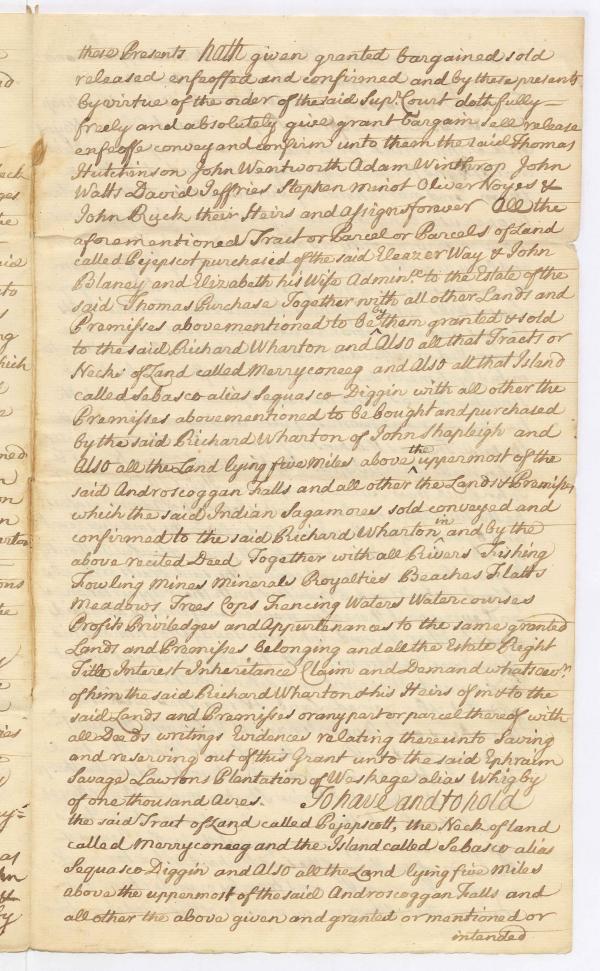 these Presents hath given granted bargained sold
released enfeoffed and confirmed and by these presents
by virtue of the order of the said Supr. Court doth fully
freely and absolutely give grant bargain sell release
enfeoffe convey and confirm unto them the said Thomas
Hutchinson John Wentworth Adam Winthrop John
Watts David Jeffries Stephen Minot Oliver Noyes &
John Ruck their Heirs and Assigns forever All the
aforementioned Tract or Parcel or Parcels of Land
called Pejepscot purchased of the said Eleazer Way & John
Blaney and Elizabeth his Wife Admin.rs to the Estate of the
said Thomas Purchase Together with all other Lands and
Premisses above mentioned to be by them granted & sold
to the said Richard Wharton and Also all that Tracts or
Necks of Land called Merryconeeg and Also all that Island
called Sebasco alias Sequasco Diggin with all other the
Premisses above mentioned to be bought and purchased
by the said Richard Wharton of John Shapleigh and
Also all the Land lying five Miles above the uppermost of the
said Androscoggan Falls and all other the Lands & Premisses
which the said Indian Sagamores sold conveyed and
confirmed to the said Richard Wharton in and by the
above recited Deed Together with all Rivers Fishing
Fowling Mines Minerals Royalties Beaches Flatts
Meadows Trees Cops Fencing Waters Watercourses
Profits Priviledges and Appurtenances to the same granted
Lands and Premisses belonging and all the Estate Right
Title Interest Inheritance Claim and Demand whatsoevr.
of him the said Richard Wharton & his Heirs of in & to the
said Lands and Premisses or any part or parcel thereof with
all Deeds writings Evidences relating thereunto Saving
and reserving out of this Grant unto the said Ephraim
Savage Lawsons Plantation of Weskege alias Whigby
of one thousand Acres. To have and to hold
the said Tract of Land called Pejepscott, the Neck of land
called Merryconeeg and the Island called Sebasco alias
Sequasco Diggin and Also all the Land lying five Miles
above the uppermost of the said Androscoggan Falls and
all other the above given and granted or mentioned or
intended